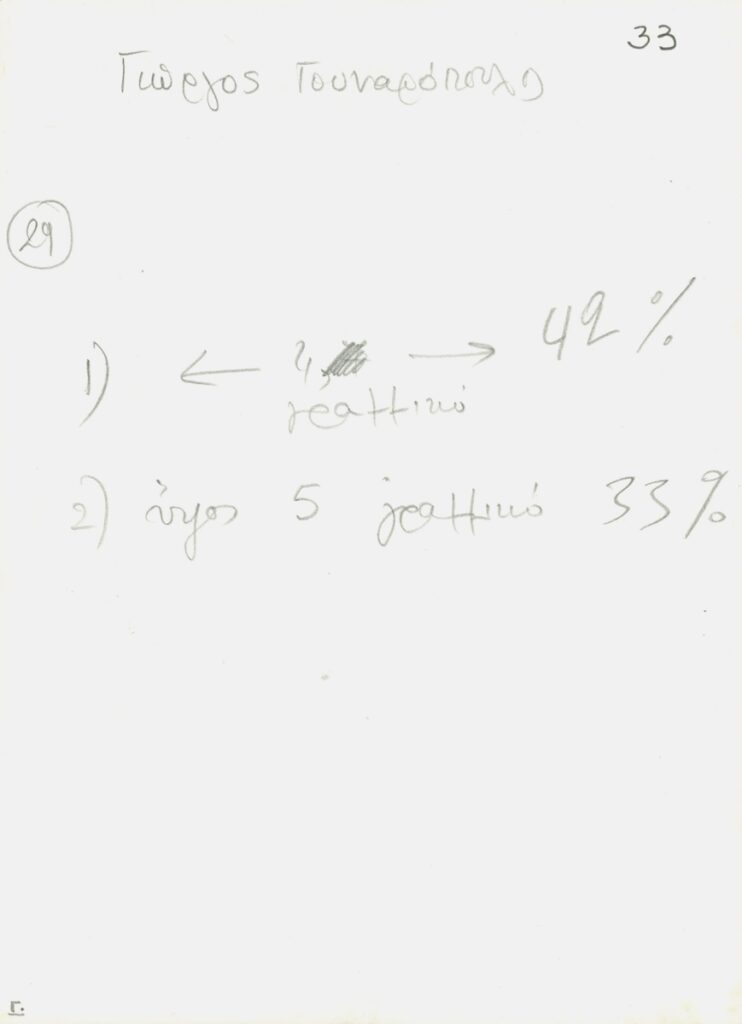 33
Γιώργος Γουναρόπουλο
29
1) ← 4, → 42%
γραμμικό
2) ύψος 5 γραμμικό 33%
Γ.